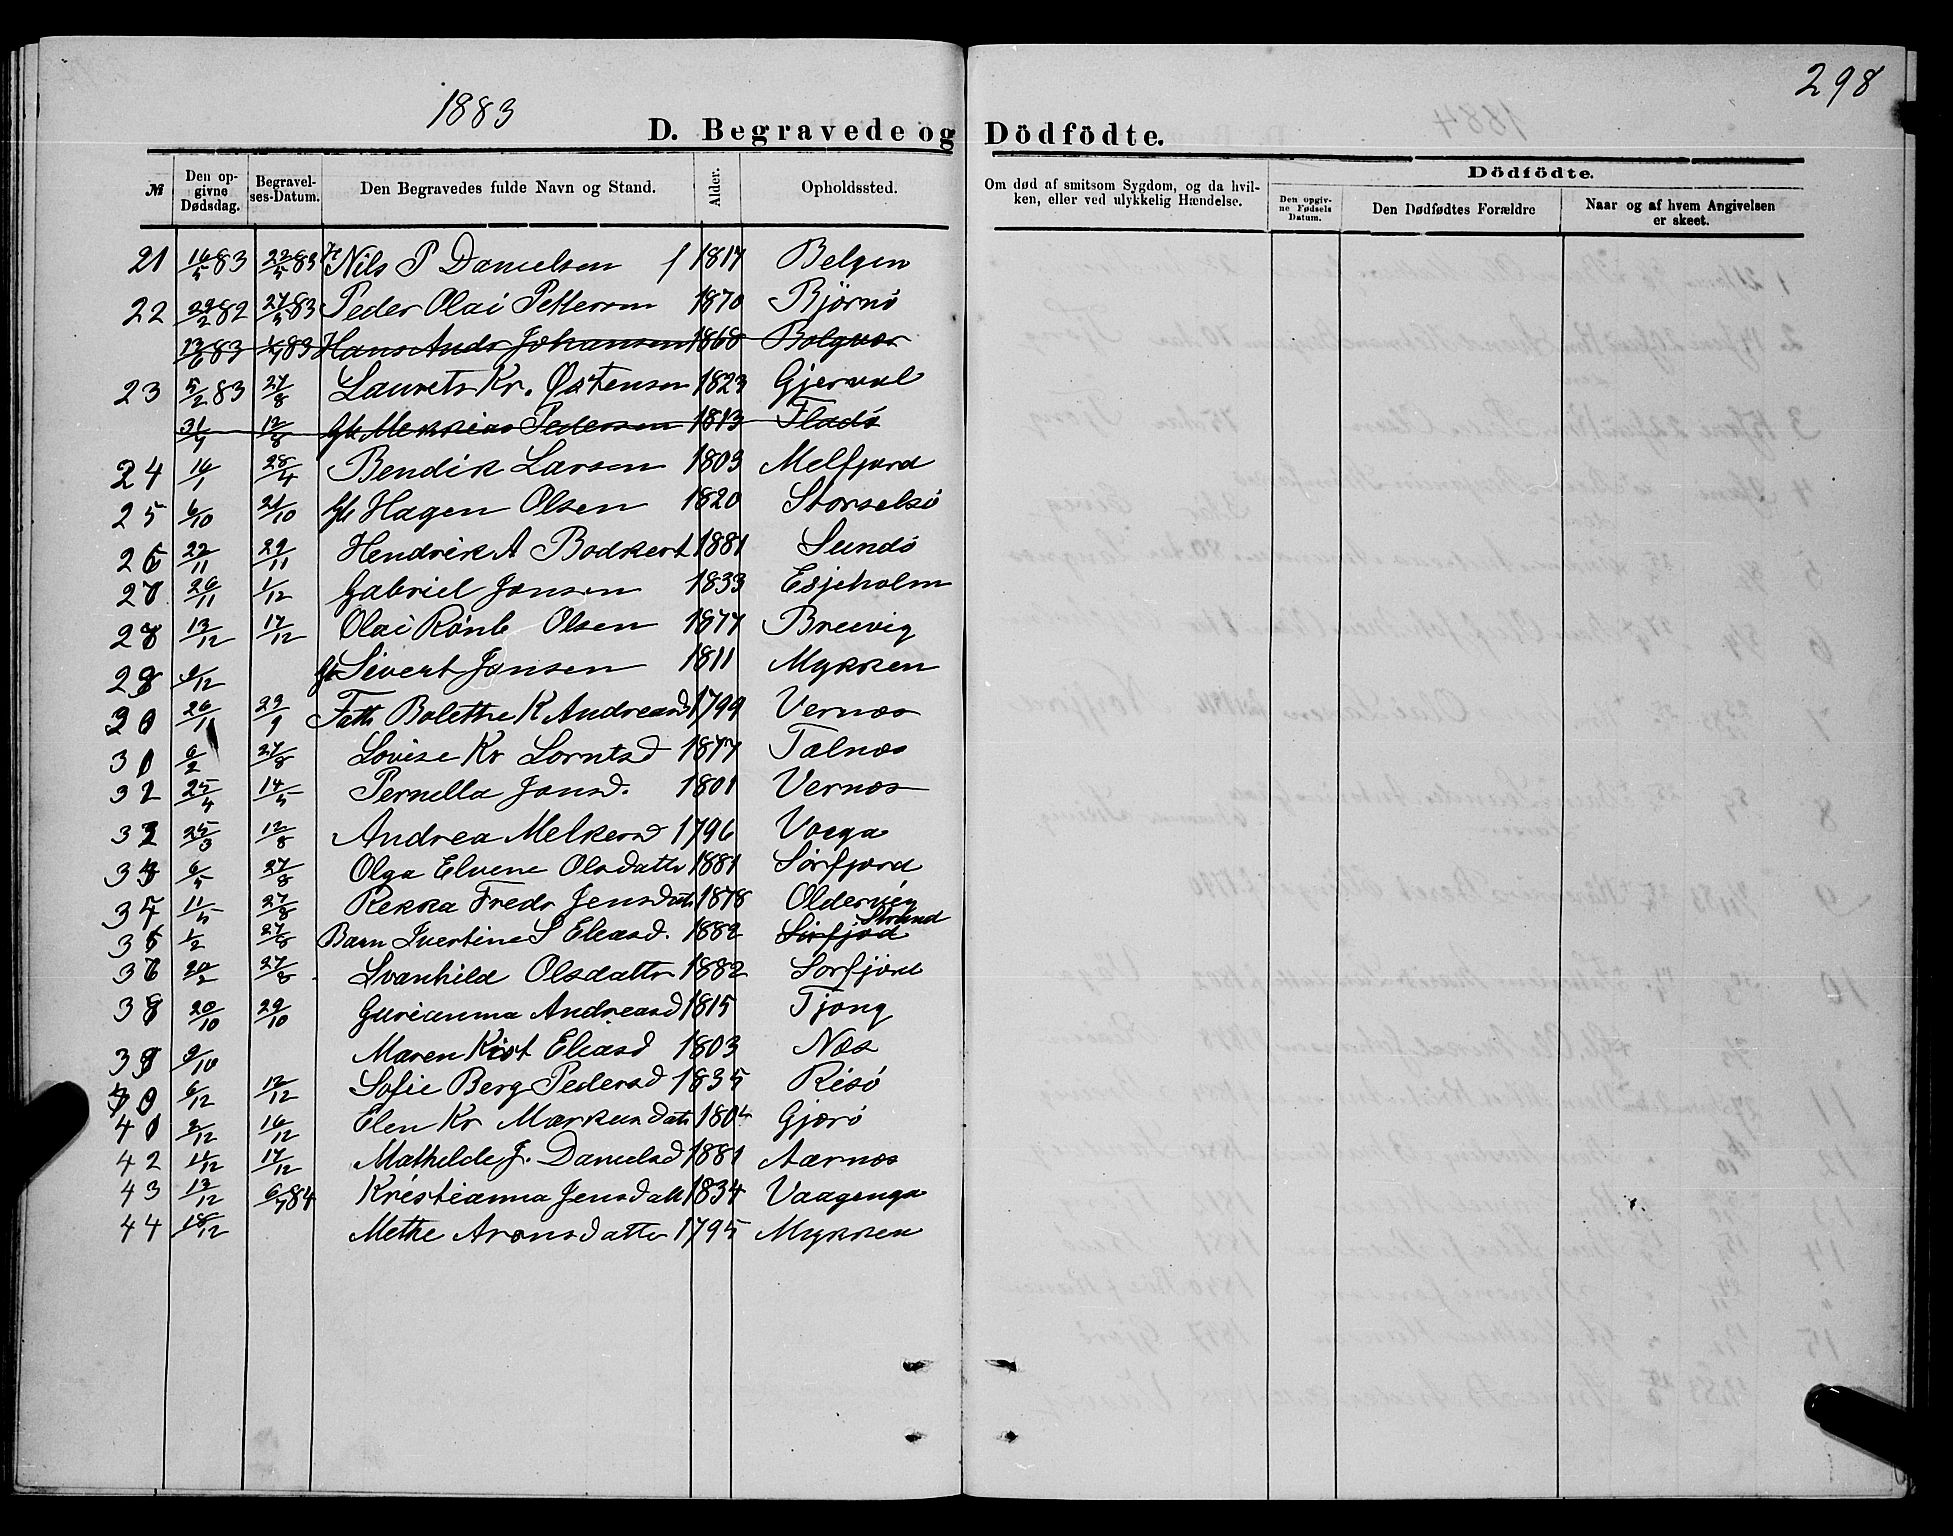 298
1883
D. Begravede og Dödfödte.
№ Den opgivne Dødsdag. Begravelses-Datum. Den Begravedes fulde Navn og Stand. Alder. Opholdssted. Om død af smitsom Sygdom, og da hvilken, eller ved ulykkelig Hændelse. Dödfödte. Den opgivne Fødsels Datum. Den Dødfødtes Forældre Naar og af hvem Angivelsen er skeet.
21 16/5 83 22/5 83 Nils P Danielsen 1817 Belgen
22 22/2 82 27/5 83 Peder Olai Petterson 1870 Björnö
13/6 83 1/7 83 Hans Andr Johansen 1868 Bolgvær
23 5/2 83 27/8 Laurets Kr. Østensen 1823 Gjerval
31/7 12/8 Gb Mekkias Pedersen 1813 Fladö
24 16/1 28/4 Bendik Larsen 1803 Melfjord
25 6/10 21/10 Gb Hagen Olsen 1820 Storselsö
26 22/11 29/11 Hendrik A Bodkert 1881 Sundö
27 26/11 1/12 Gabriel Jonsen 1833 Esjeholm
28 13/12 17/12 Olai Rönb Olsen 1877 Breivig
29 6/12 Gb Sivert Jonsen 1811 Mykken
30 26/1 23/9 Fatt Bolethe K Andreasd 1799 Vernæs
31 6/2 27/8 Lovise Kr Lorntsd 1877 Telnæs
32 25/4 14/5 Pernella Jonsd. 1801 Vernæs
33 25/3 12/8 Andrea Melkersd 1796 Vaaga
34 6/5 27/8 Olga Elvene Olsdatter 1881 Sörfjord
35 11/5 27/8 Rekka Fredr Jensdatt 1878 Oldervig
36 1/2 27/8 Barn Ivertine S Eliasd. 1882 Sörfjod Strand
37 20/2 27/8 Svanhild Olsdatter 1882 Sorfjord
38 20/10 29/10 Gurianna Andreasd 1815 Tjong
39 9/10 Maren Kist Eliasd 1803 Næs
40 6/12 12/12 Sofie Berg Pedersd 1835 Risö
41 2/12 16/12 Elen Kr Markusdatt 1804 Gjærö
42 11/12 17/12 Mathilde J. Danielsd 1881 Aarnæs
43 12/12 6/7 84 Kristianna Jensdatt 1834 Vaagenga
44 18/12 Methe Aronsdatter 1795 Mykken